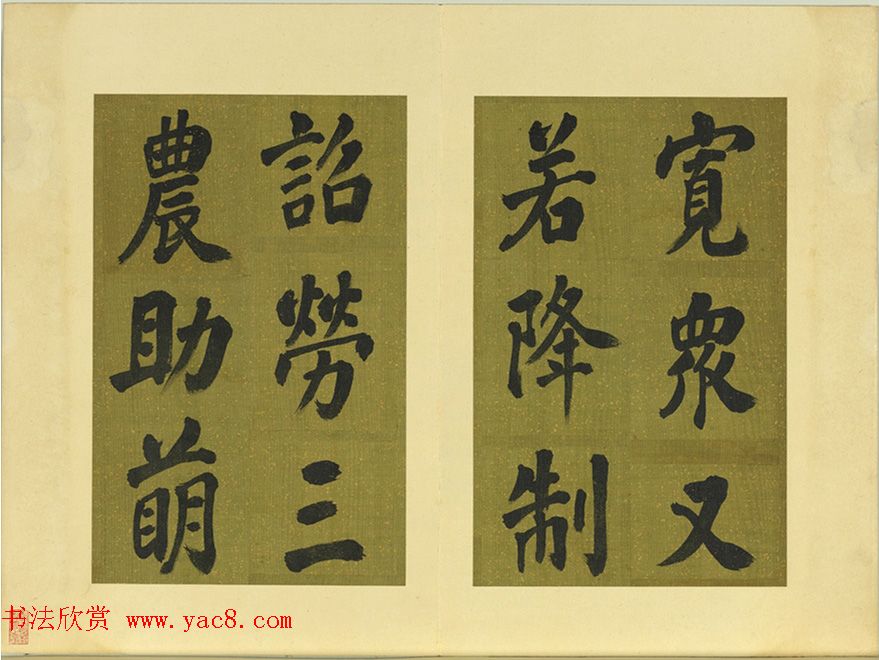 寬眾又
若降制
詔勞三
農助萌
书法欣赏 www.yac8.com